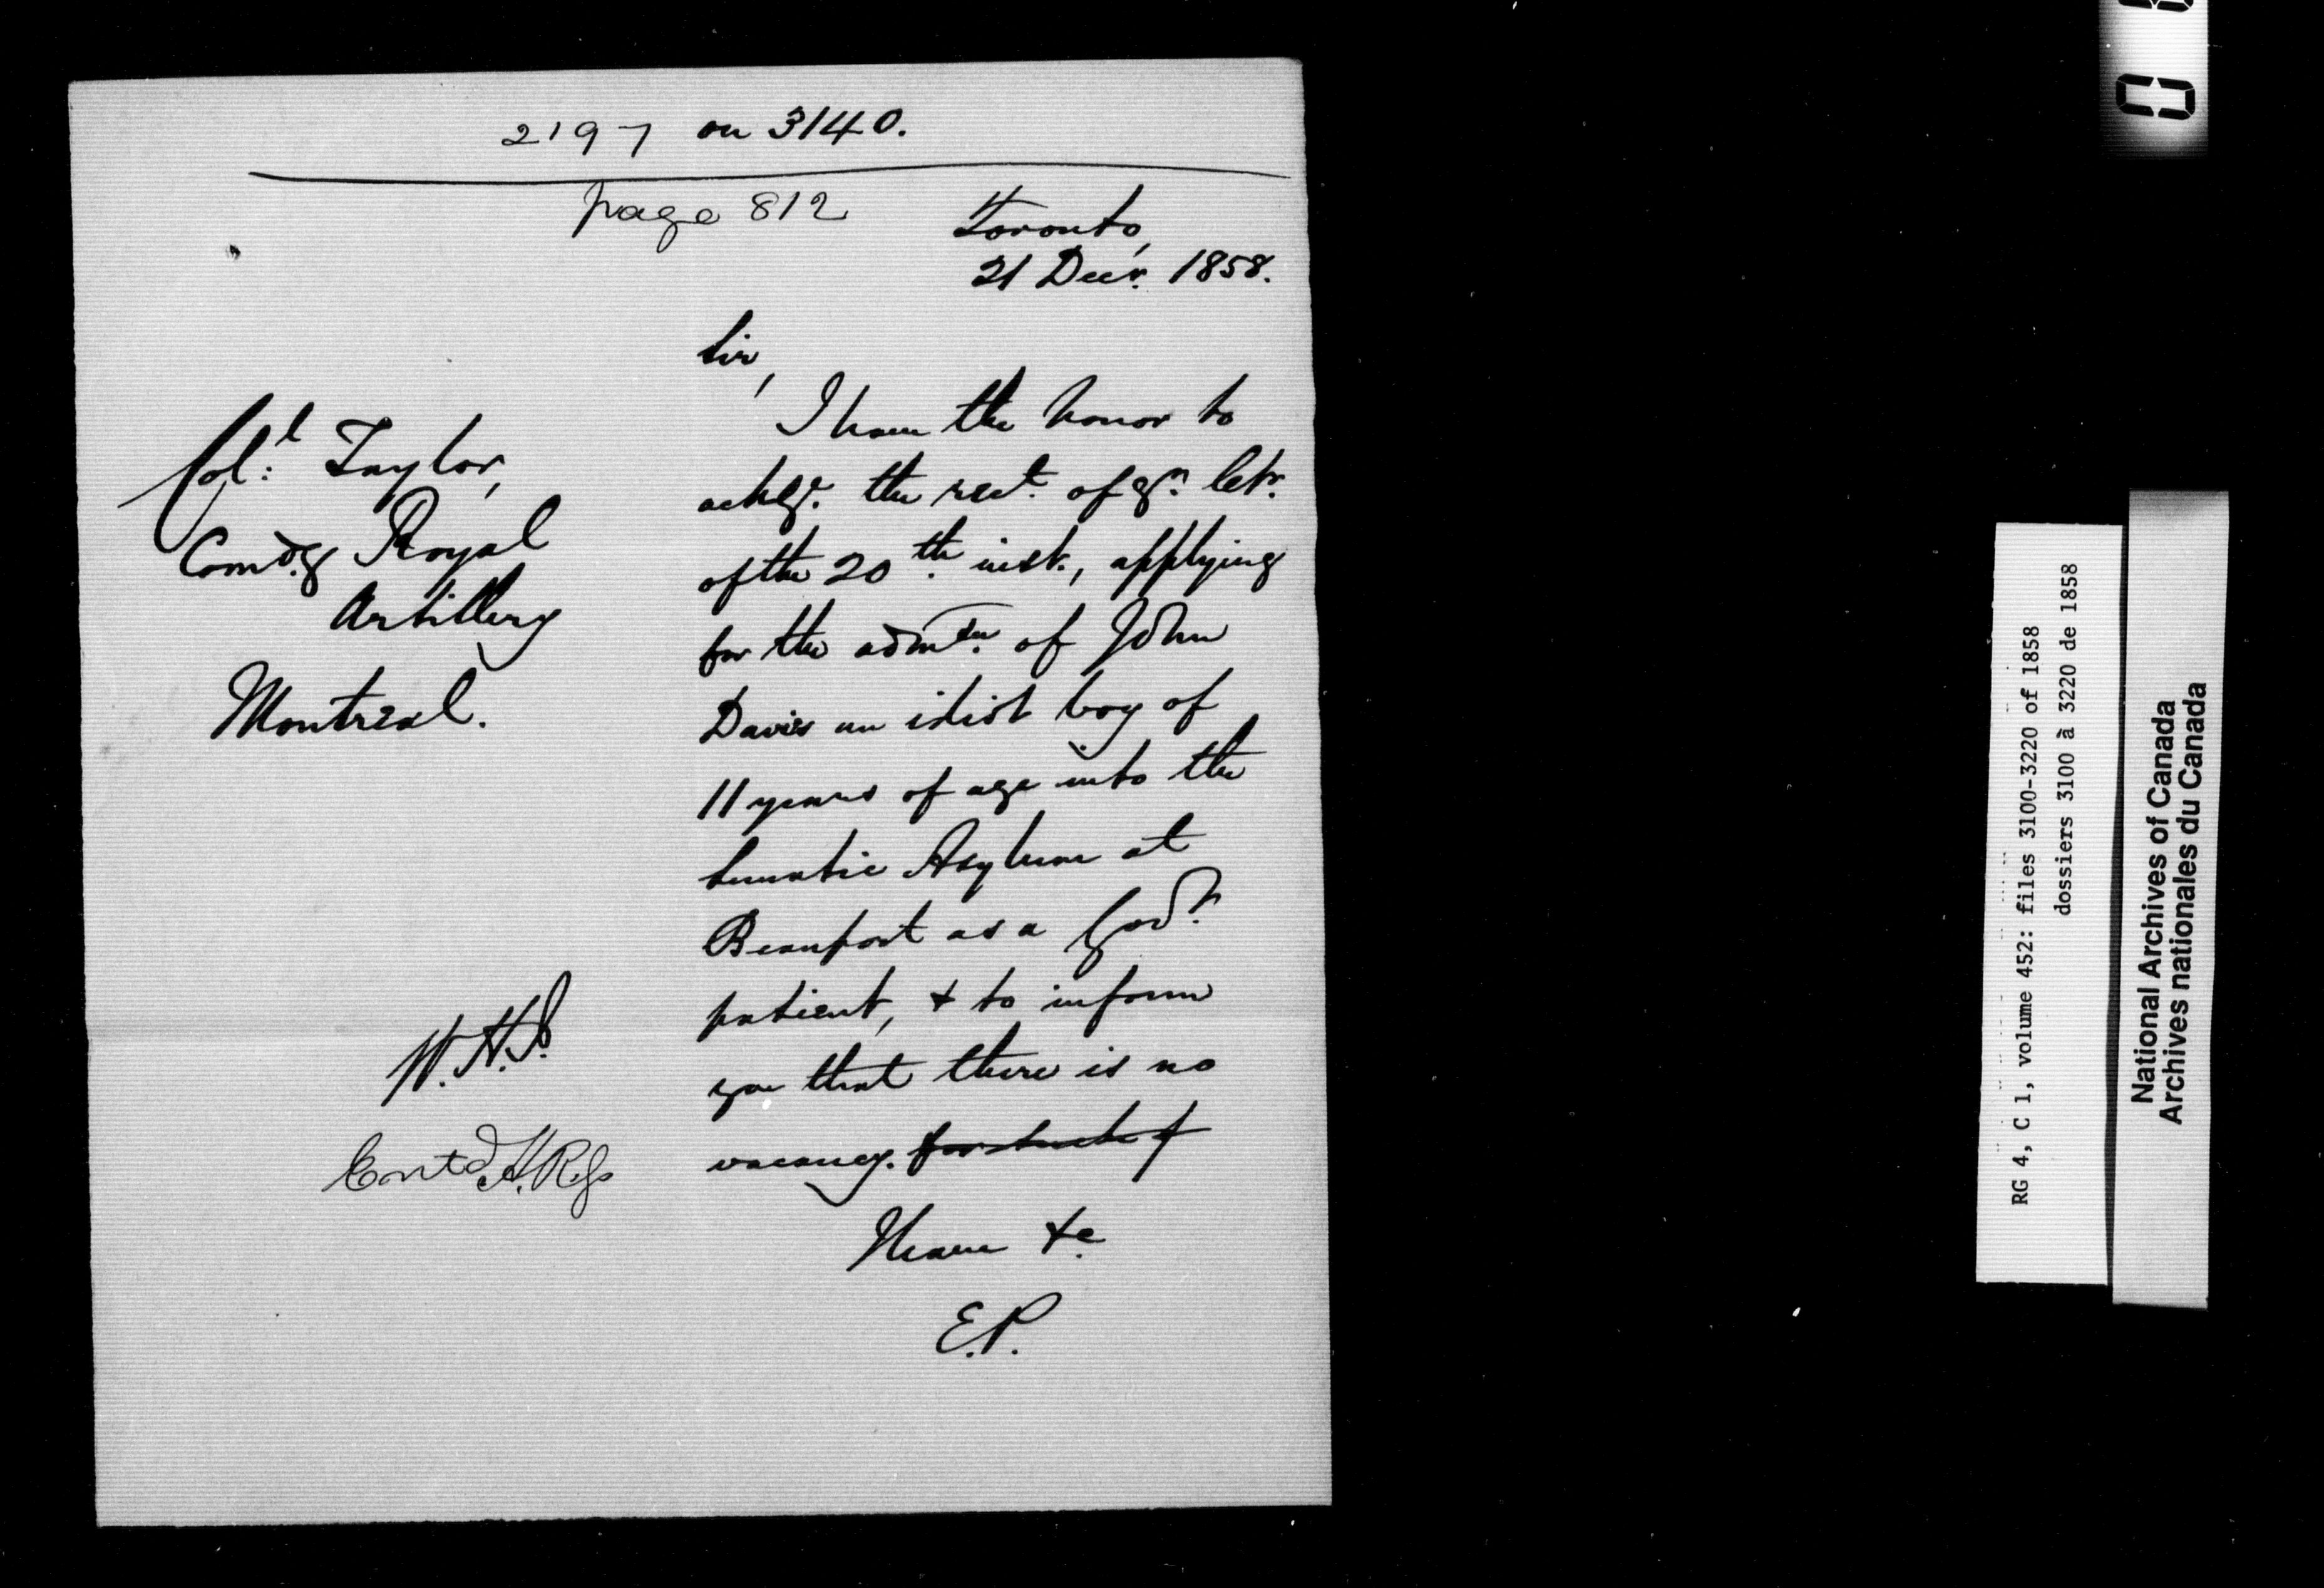 2197 on 3140.
page 812
Toronto,
21 Decr. 1858.
Sir,
I have the honor to
ackgе. the rect. of yr. letr.
of the 20th. inst., applying
for the admton. of John
Davis an idiot boy of
11 years of age into the
Lunatic Asylum at
Beauport as a Govt.
patient, & to inform
you that there is no
vacancy. for such f
I have &c.
E.P.
Coll: Taylor,
Comdg. Royal
Artillery
Montreal.
Entd
RG 4, C 1, volume 452: files 3100-3220 of 1858
dossiers 3100 à 3220 de 1858
National Archives of Canada
Archives nationales du Canada